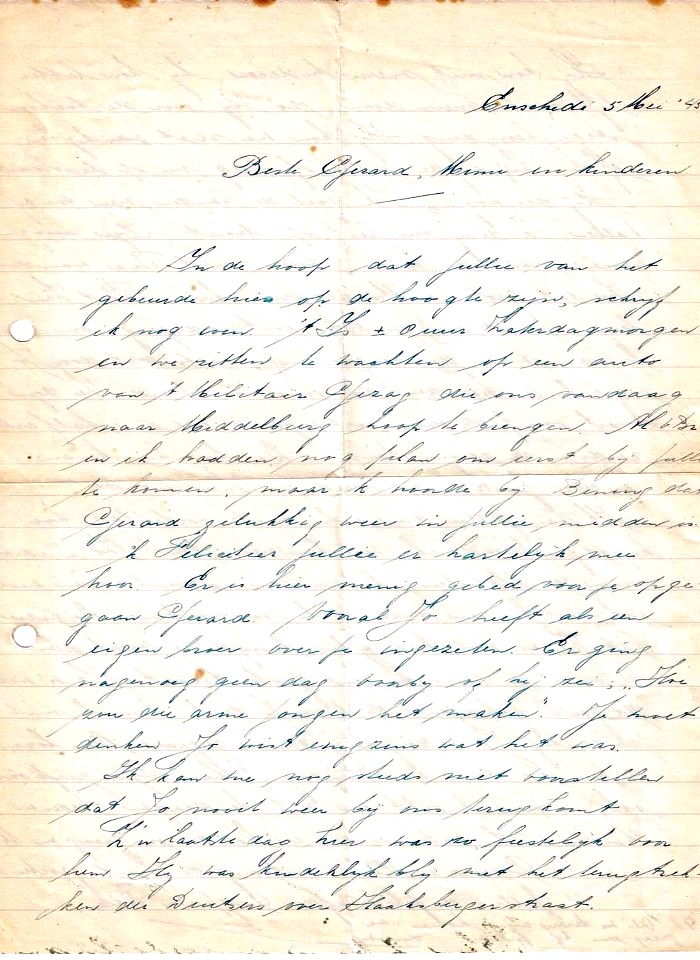 Enschede 5 Mei '45
Beste Gerard, Mimi en kinderen
In de hoop dat jullie van het
gebeurde hier op de hoogte zijn, schrijf
ik nog even. 't Is ± 8 uur Zaterdagmorgen
en we zitten te wachten op een auto
van 't Militair Gezag die ons vandaag
naar Middelburg hoop te brengen.
en ik hadden nog plan om eerst bij jullie
te komen, maar ik hoorde bij Bening dat
Gerard gelukkig weer in jullie midden is.
ik Feliciteer jullie er hartelijk mee
hoor. Er is hier menig gebed voor je opge
gaan Gerard. Vooral Jo heeft als een
eigen broer over je ingezeten. Er ging
nagenoeg geen dag voorbij of hij zei; „Hoe
zou die arme jongen het maken". Je moet
denken Jo wist enigzins wat het was.
Ik kan me nog steeds niet voorstellen
dat Jo nooit weer bij ons terugkomt
Z'n laatste dag hier was zo feestelijk voor
hem Hij was kinderlijk blij met het terugtrek-
ken der Duitsers over Haaksbergerstraat.